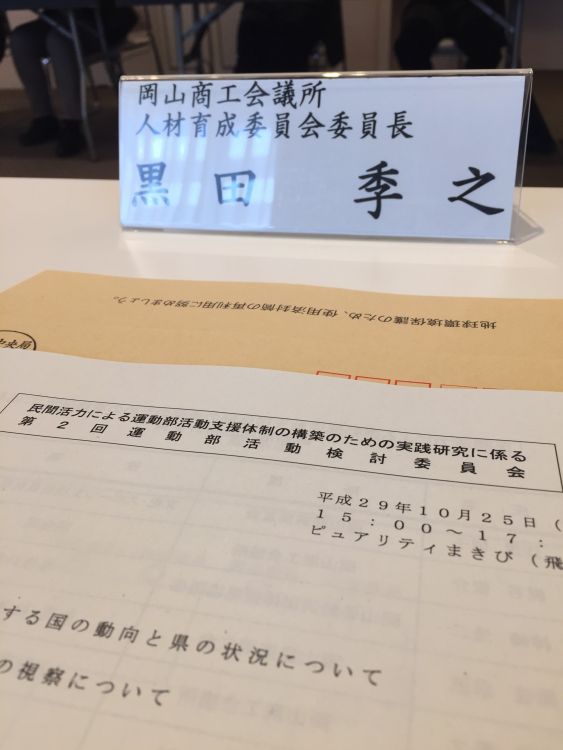 岡山商工会議所
人材育成委員会委員長
黒田 季之
地球環境保護のため、使用済封筒の再利用に努めましょう。
中央局
民間活力による運動部活動支援体制の構築のための実践研究に係る
第2回運動部活動検討委員会
平成29年10月25日（
15：00～17：
ピュアリティまきび（飛
する国の動向と県の状況について
の視察について